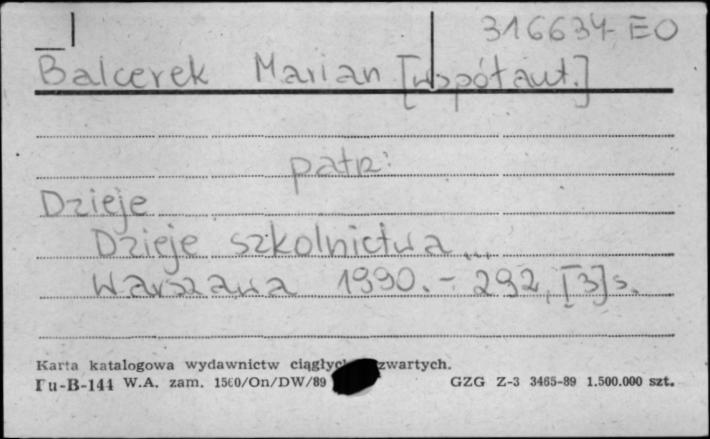 316634 EO
Balcerek Marian [współaut.]
patrz:
Dzieje
Dzieje szkolnictwa...
Warszawa 1990. - 292, [3] s.
Karta katalogowa wydawnictw ciągłych zwartych.
Pu-B-144 W.A. zam. 1560/On/DW/89 GZG Z-3 3465-89 1.500.000 szt.